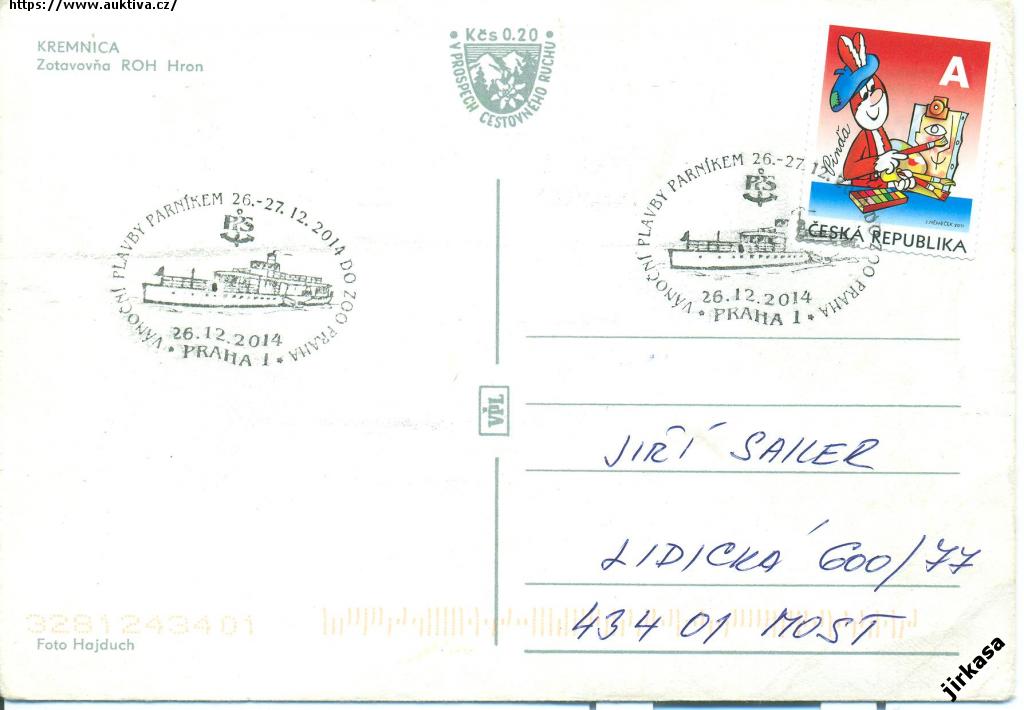 https://www.auktiva.cz/
KREMNICA
Zotavovňa ROH Hron
Kčs 0.20
V PROSPECH CESTOVNÉHO RUCHU
A
Pinďa
J. NĚMEČEK 2011
ČESKÁ REPUBLIKA
VÁNOČNÍ PLAVBY PARNÍKEM 26.-27.12.2014 DO ZOO PRAHA
PPS
26.12.2014
PRAHA 1
VÁNOČNÍ PLAVBY PARNÍKEM 26.-27.12. DO ZOO PRAHA
PPS
26.12.2014
PRAHA 1
VPL
JIŘÍ SAILER
LIDICKÁ 600/77
434 01 MOST
3281243401
Foto Hajduch
jirkasa